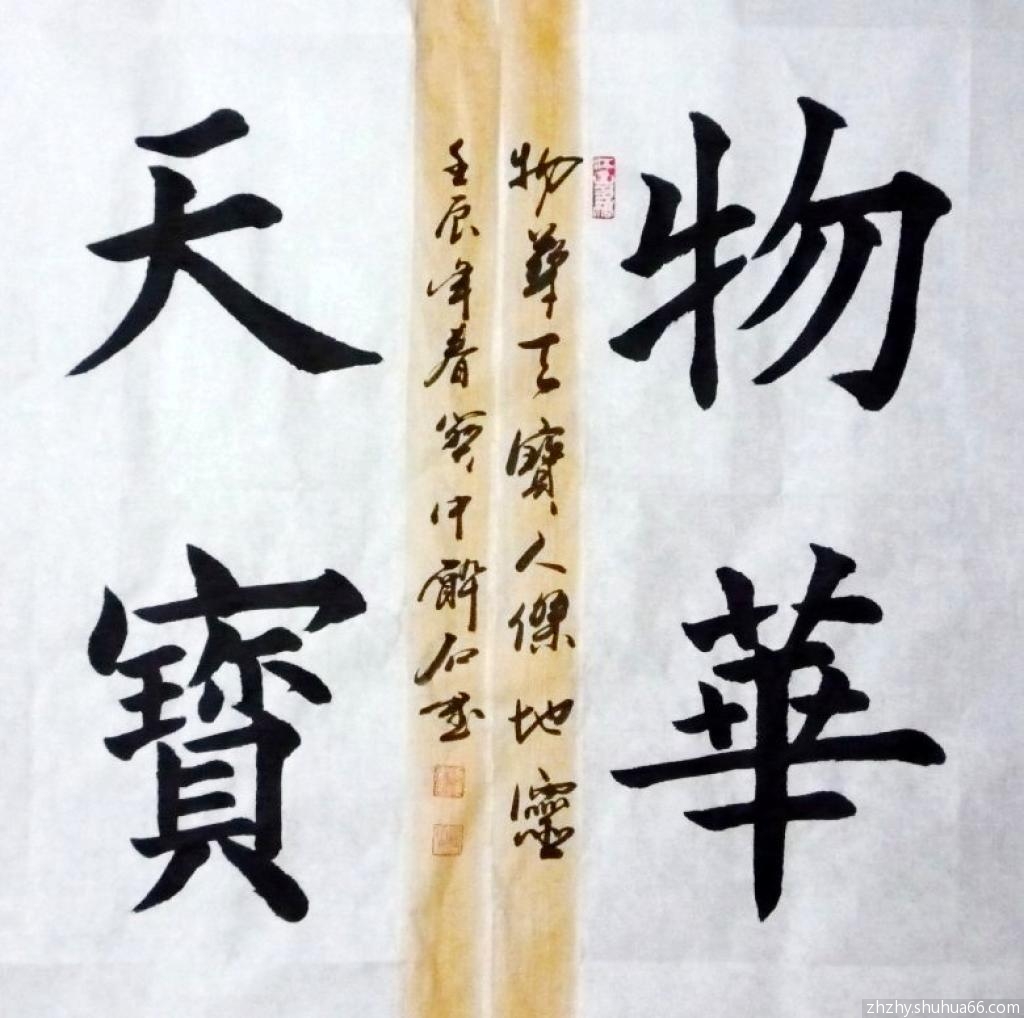 物華
天寶
物華天寶人傑地靈
壬辰年春賀中解石書
zhzhy.shuhua66.com